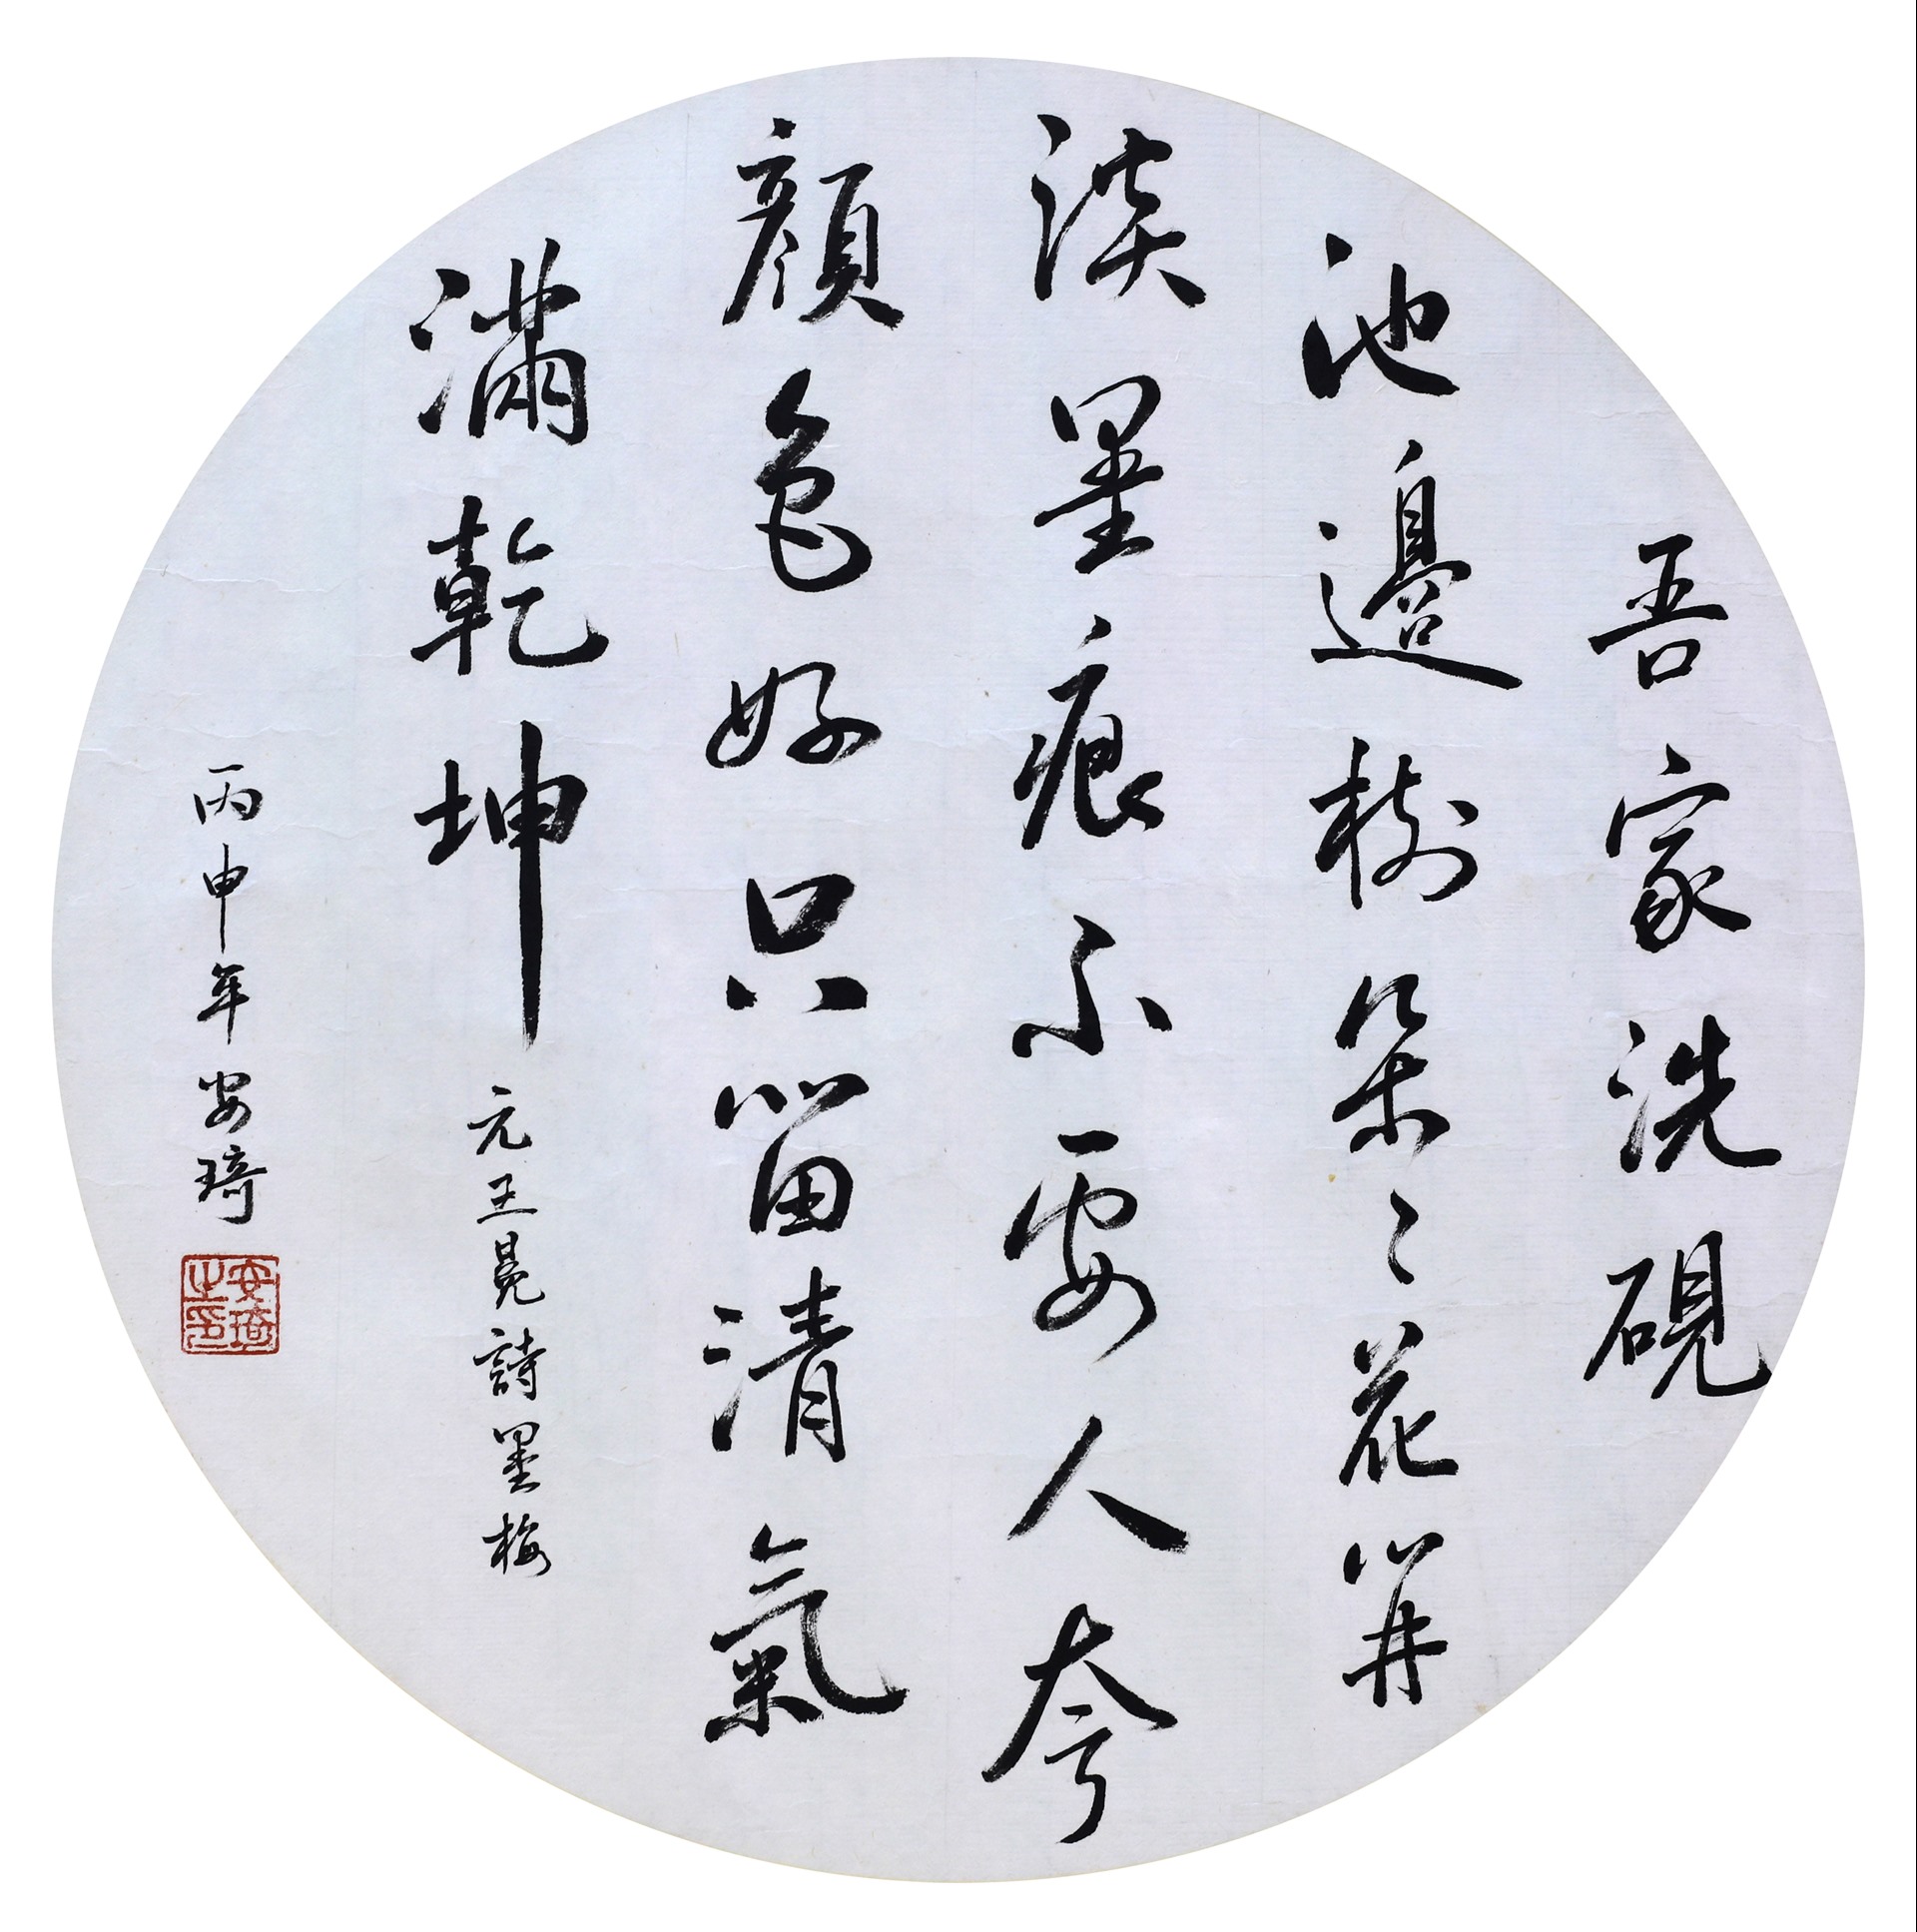 吾家洗硯
池邊樹朵々花開
淡墨痕不要人夸
顏色好只留清氣
滿乾坤
元王冕詩墨梅
丙申年安琦
安琦之印